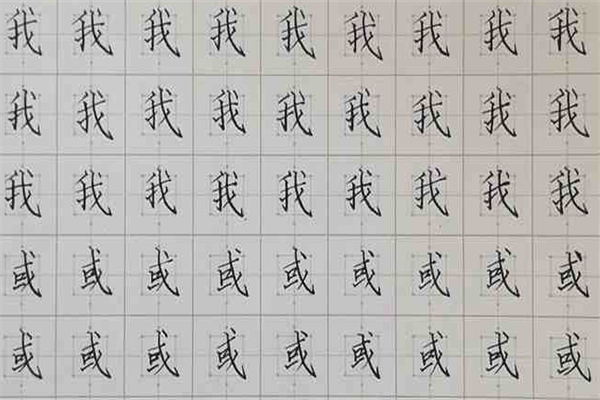 我我我我我我我我我
我我我我我我我我我
我我我我我我我我我
或或或或或或或或或
或或或或或或或或或